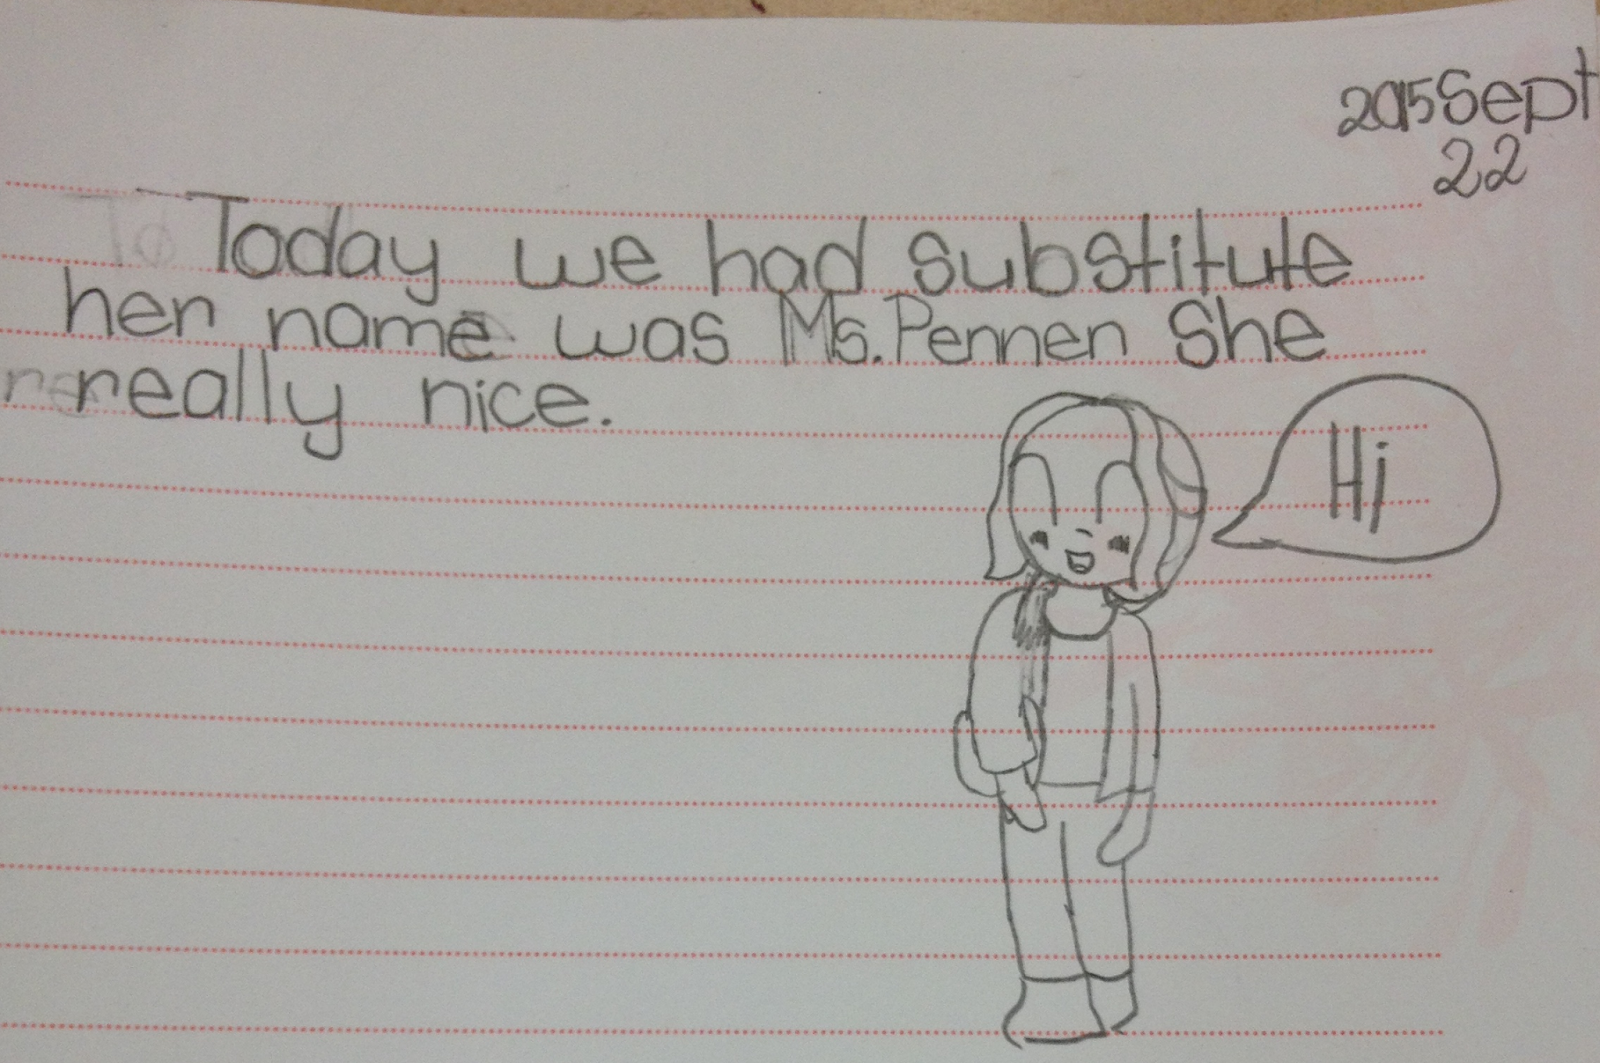 2015 Sept
22
Today we had substitute
her name was Ms. Pennen She
really nice.
Hi